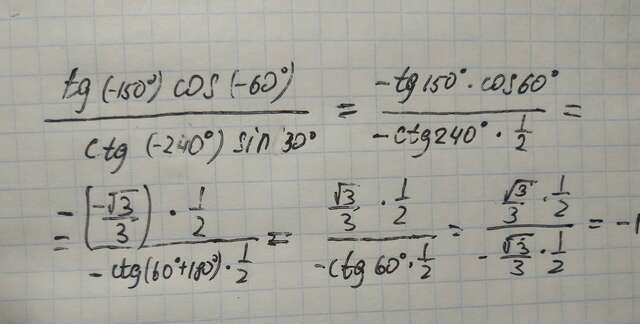 tg(-150°) cos(-60°) / ctg(-240°) sin 30° = -tg150° · cos60° / -ctg240° · 1/2 =
= -(-√3/3) · 1/2 / -ctg(60°+180°) · 1/2 = √3/3 · 1/2 / -ctg60° · 1/2 = √3/3 · 1/2 / -√3/3 · 1/2 = -1